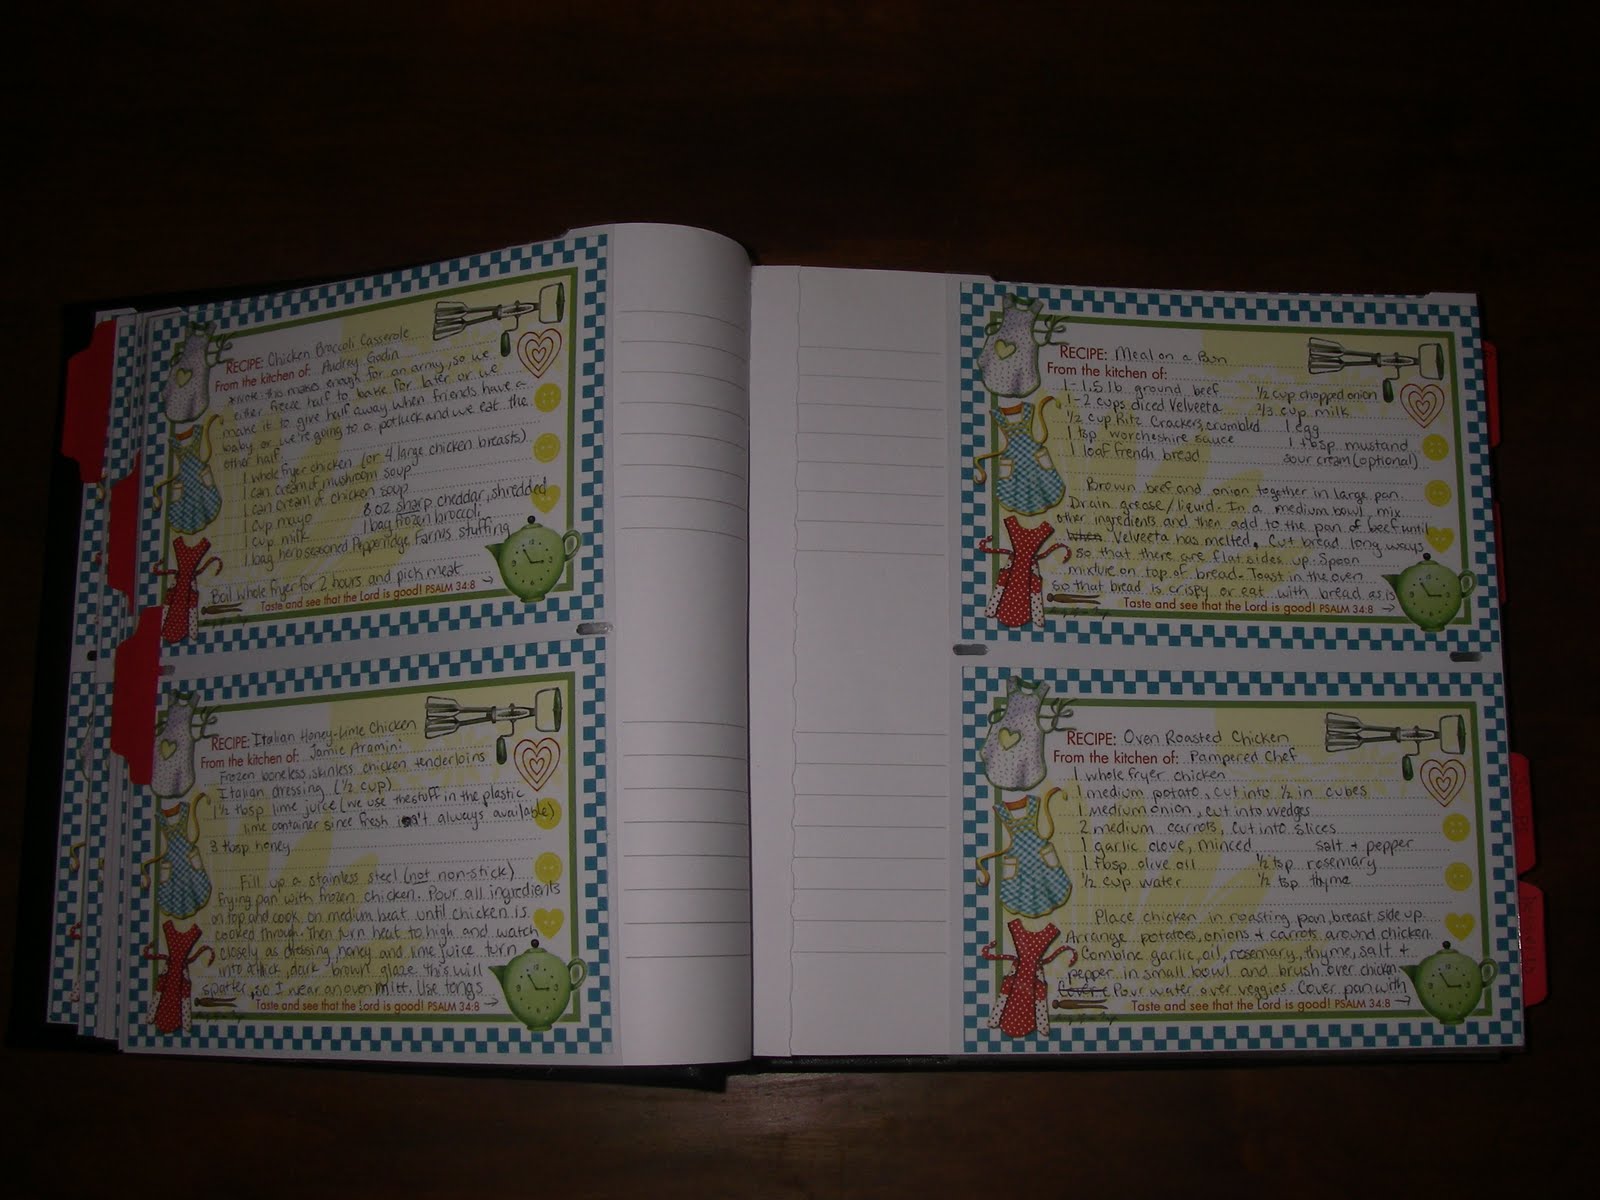 RECIPE: Chicken Broccoli Casserole
From the kitchen of: Audrey Godin
*Note: this makes enough for an army, so we
either freeze half to bake for later or we
make it to give half away when friends have a
baby or we're going to a potluck and we eat the
other half.
1 whole fryer chicken (or 4 large chicken breasts)
1 can cream of mushroom soup
1 can cream of chicken soup
1 cup mayo 8 oz sharp cheddar, shredded
1 cup milk 1 bag frozen broccoli
1 bag herb seasoned Pepperidge Farms stuffing
Boil whole fryer for 2 hours and pick meat →
Taste and see that the Lord is good! PSALM 34:8
RECIPE: Italian Honey-Lime Chicken
From the kitchen of: Jamie Aramini
Frozen boneless, skinless chicken tenderloins
Italian dressing (1/2 cup)
1 1/2 tbsp lime juice (we use the stuff in the plastic
lime container since fresh isn't always available)
3 tbsp honey
Fill up a stainless steel (not non-stick)
frying pan with frozen chicken. Pour all ingredients
on top and cook on medium heat until chicken is
cooked through. Then turn heat to high and watch
closely as dressing, honey and lime juice turn
into a thick, dark brown glaze. this will
spatter, so I wear an oven mitt. Use tongs →
Taste and see that the Lord is good! PSALM 34:8
RECIPE: Meal on a Bun
From the kitchen of:
1-1.5 lb ground beef 1/2 cup chopped onion
1-2 cups diced Velveeta 2/3 cup milk
1/2 cup Ritz Crackers, crumbled 1 egg
1 tsp worcheshire sauce 1 tbsp mustand
1 loaf french bread sour cream (optional)
Brown beef and onion together in large pan.
Drain grease/liquid. In a medium bowl, mix
other ingredients and then add to the pan of beef until
when Velveeta has melted. Cut bread long ways
so that there are flat sides up. Spoon
mixture on top of bread. Toast in the oven
so that bread is crispy or eat with bread as is
Taste and see that the Lord is good! PSALM 34:8 →
RECIPE: Oven Roasted Chicken
From the kitchen of: Pampered Chef
1 whole fryer chicken
1 medium potato, cut into 1/2 in cubes
1 medium onion, cut into wedges
2 medium carrots, cut into slices
1 garlic clove, minced salt + pepper
1 tbsp olive oil 1/2 tsp rosemary
1/2 cup water 1/2 tsp thyme
Place chicken in roasting pan, breast side up.
Arrange potatoes, onions + carrots around chicken.
Combine garlic, oil, rosemary, thyme, salt +
pepper in small bowl and brush over chicken.
Cover Pour water over veggies. Cover pan with
Taste and see that the Lord is good! PSALM 34:8 →